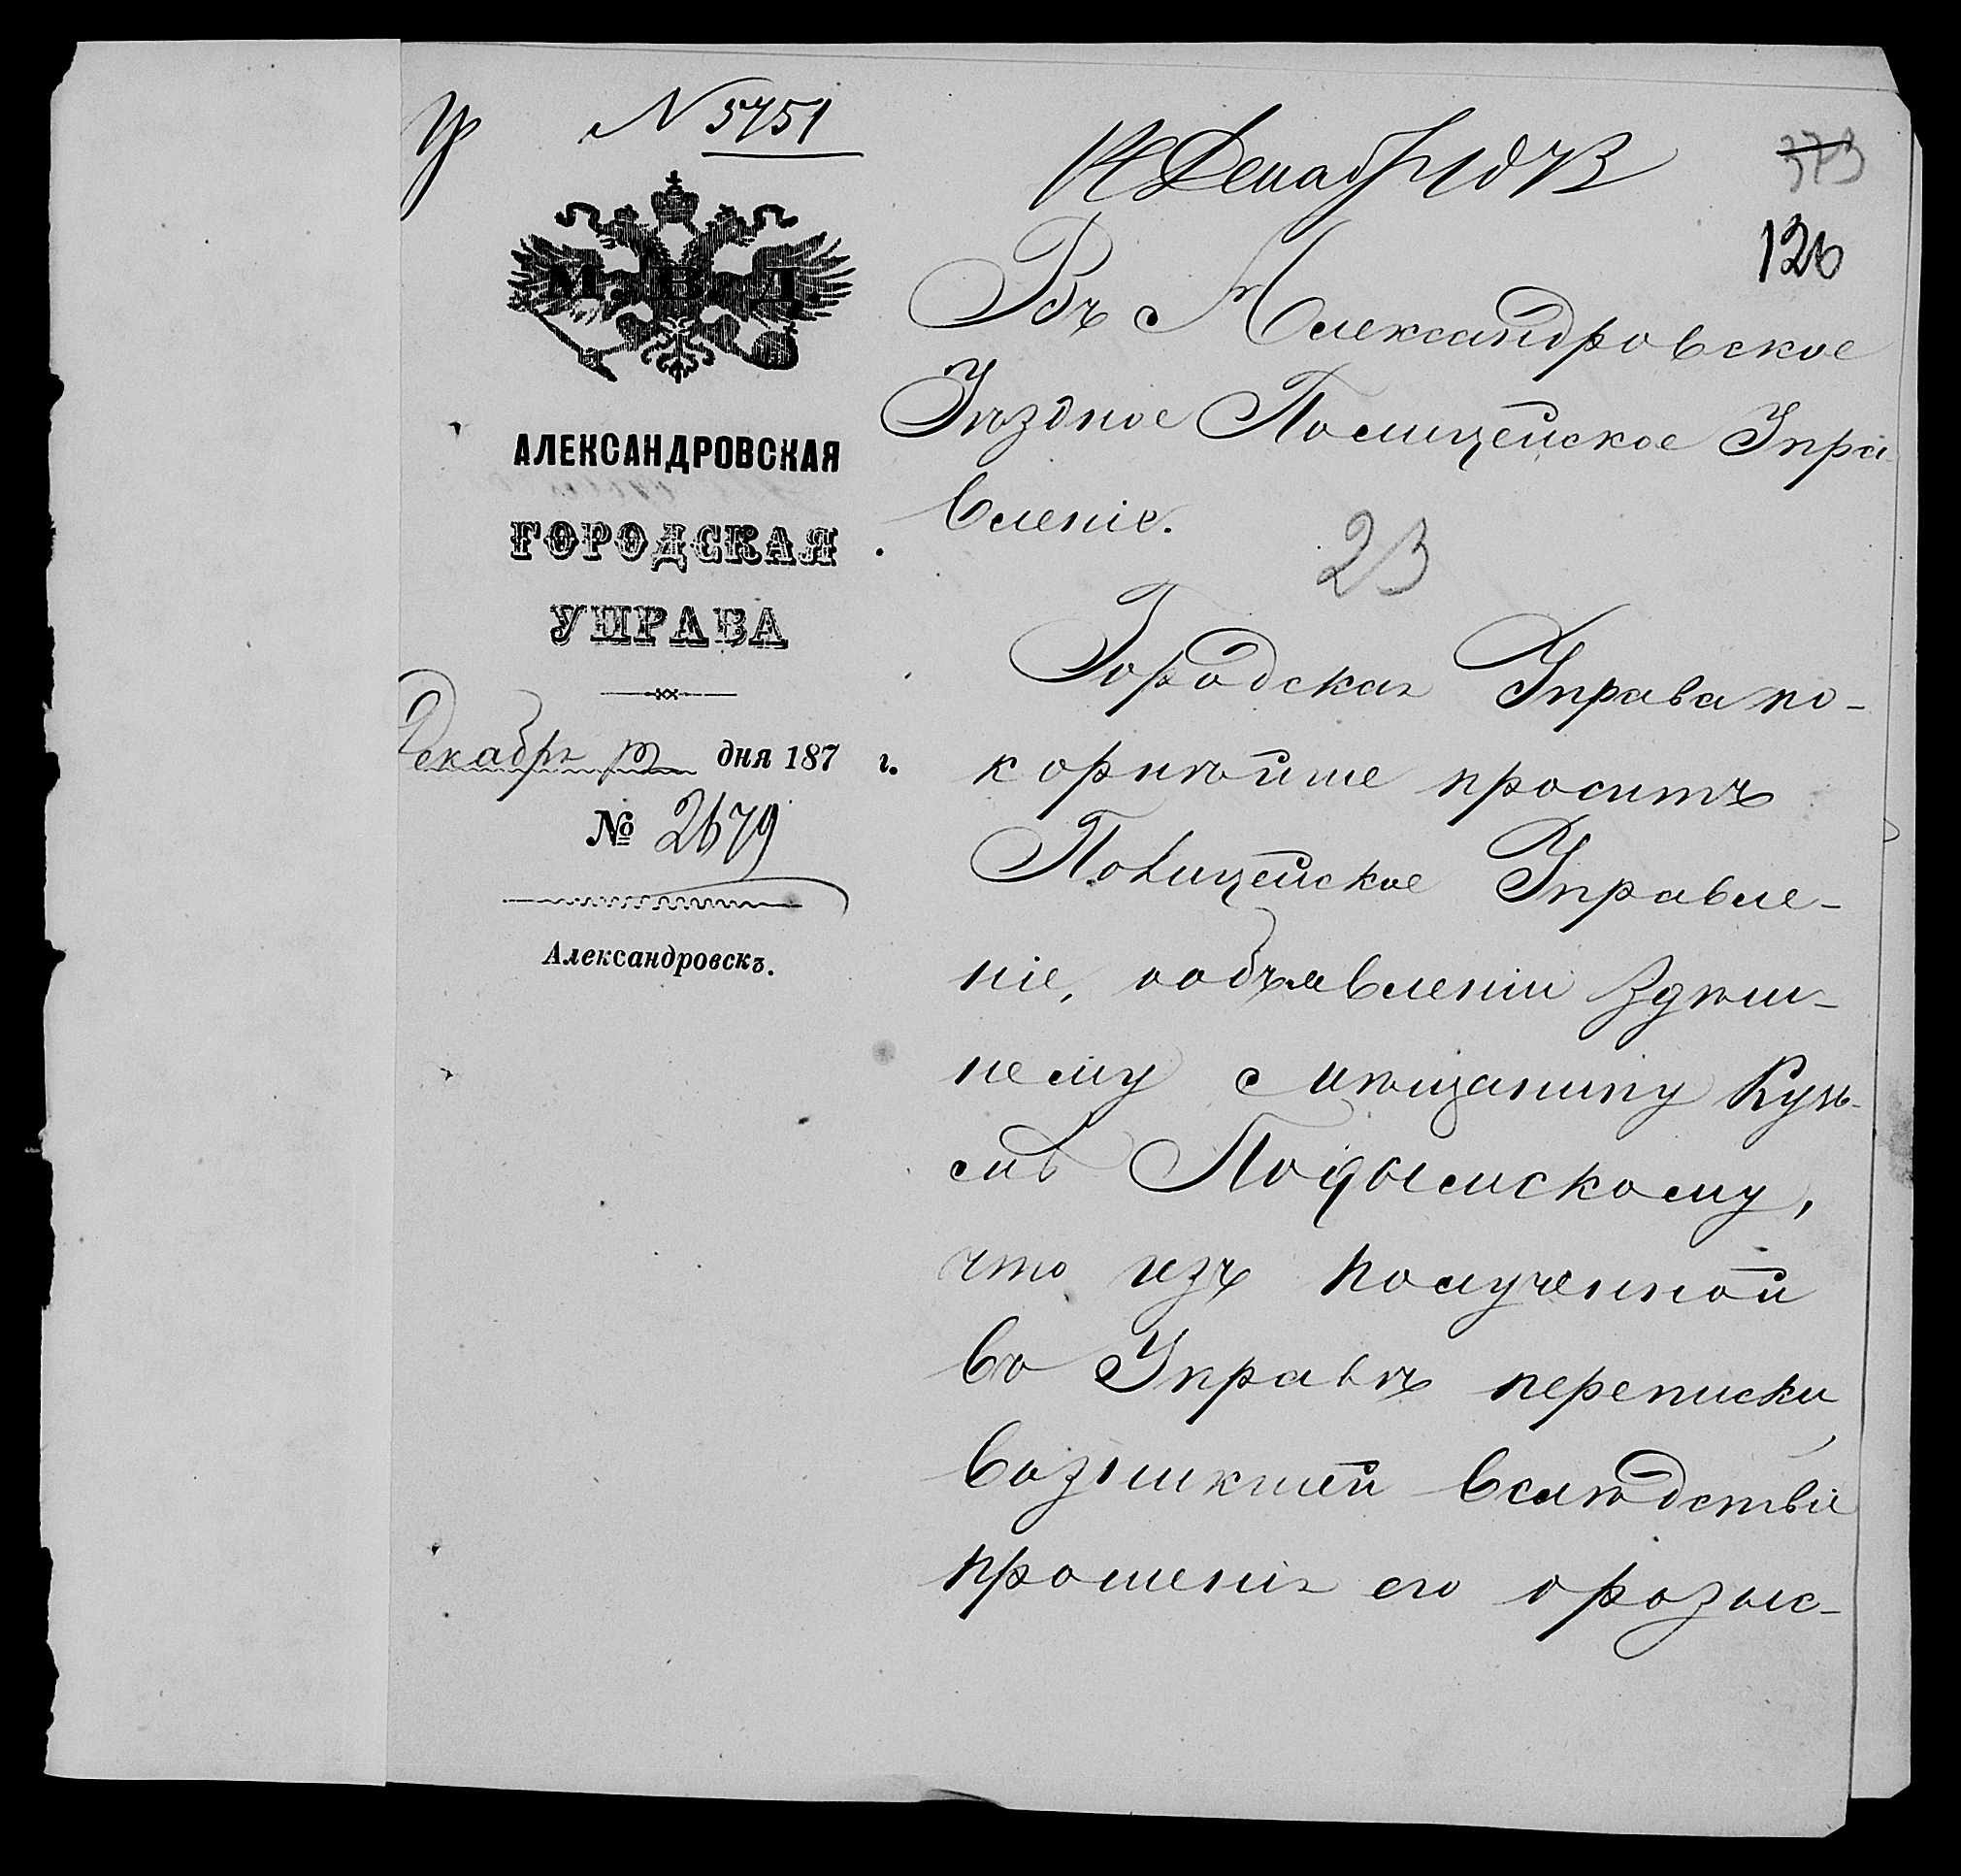 N 5751
14 Декабря 1873
373
126
М.В.Д
АЛЕКСАНДРОВСКАЯ
ГОРОДСКАЯ
УПРАВА
Декабря 13 дня 187 г.
№ 2679
Александровскъ.
Въ Александровское
Уѣздное Полицейское Упра-
вленіе.
23
Городская Управа по-
корнѣйше проситъ
Полицейское Управле-
ніе, о объявленіи здѣш-
нему мѣщанину Кузь-
мѣ Подымскому,
что изъ полученной
во Управѣ переписки,
возникшей вслѣдствіе
прошенія его о розыс-